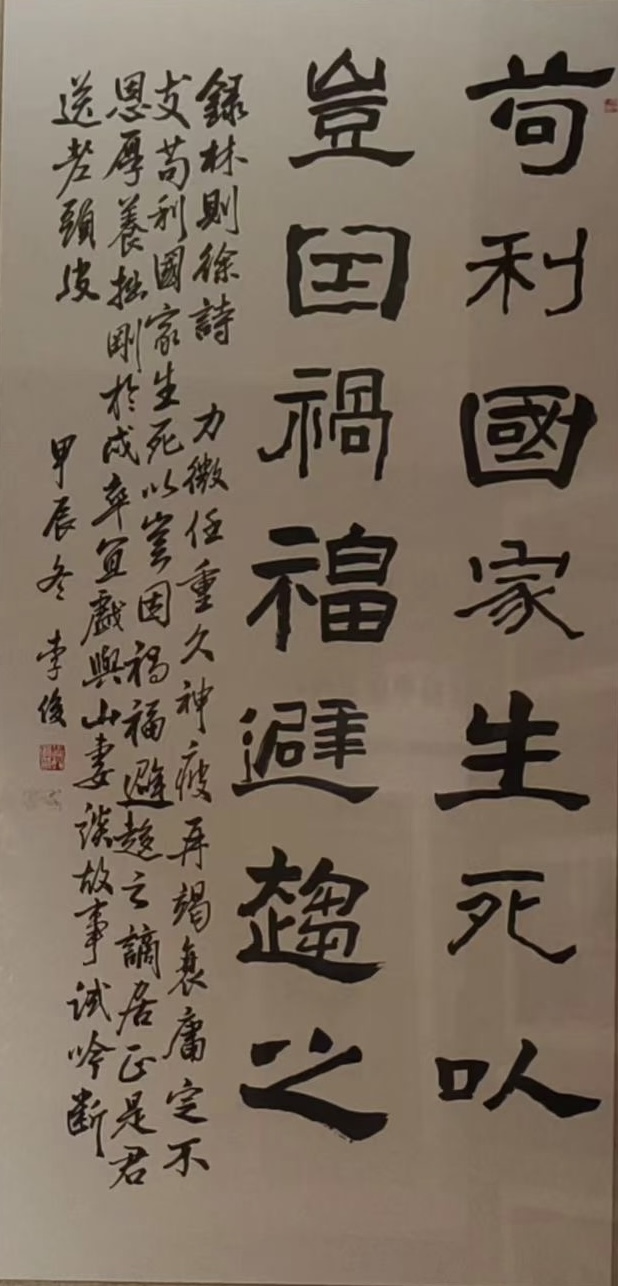 苟利國家生死以
豈因禍福避趨之
錄林則徐詩 力微任重久神疲再竭衰庸定不
支苟利國家生死以豈因禍福避趨之謫居正是君
恩厚養拙剛於戍卒宜戲與山妻談故事試吟斷
送老頭皮 甲辰冬 李俊